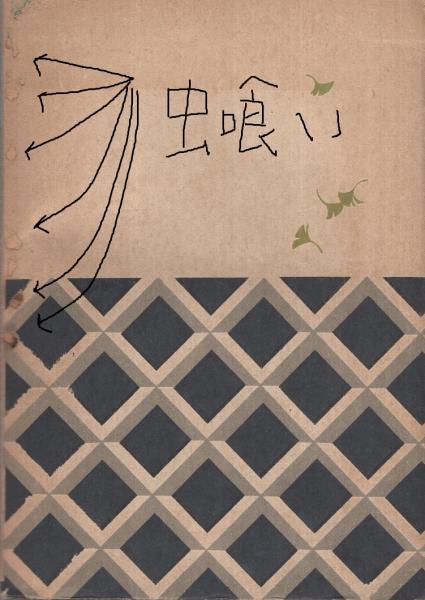 虫喰い